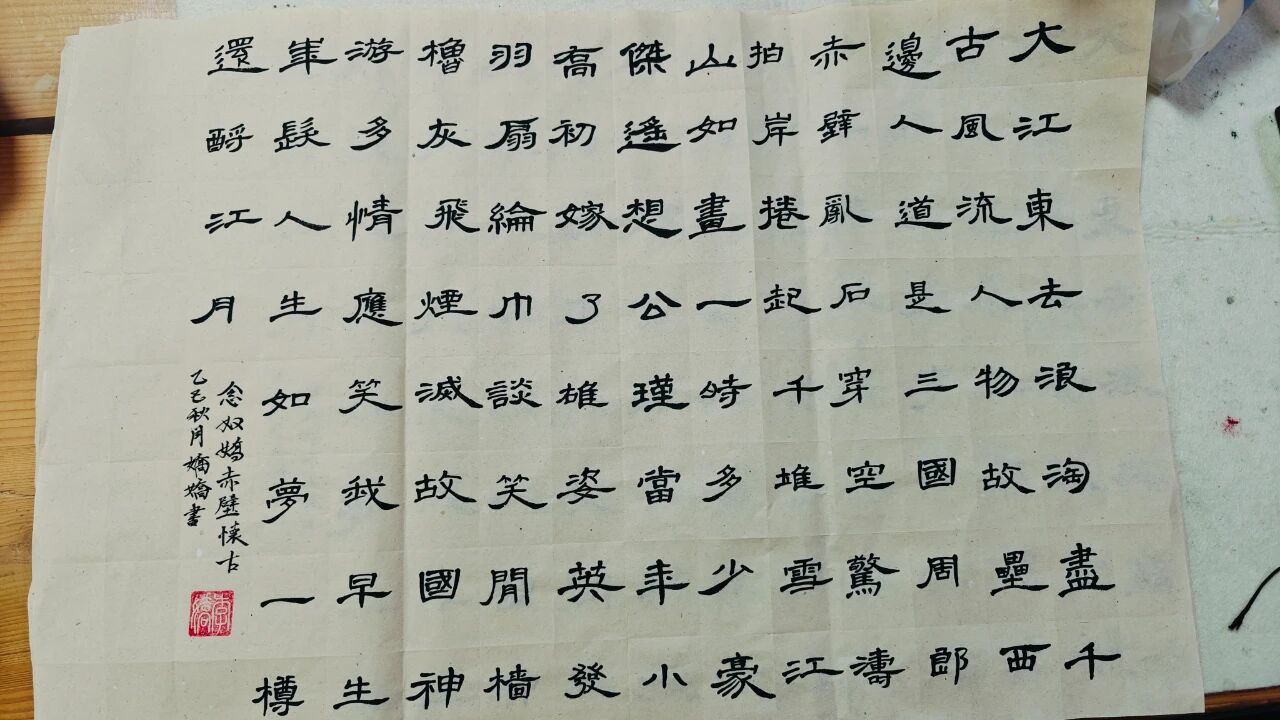 大江東去浪淘盡千
古風流人物故壘西
邊人道是三國周郎
赤壁亂石穿空驚濤
拍岸捲起千堆雪江
山如畫一時多少豪
傑遙想公瑾當年小
喬初嫁了雄姿英發
羽扇綸巾談笑閒檣
櫓灰飛煙滅故國神
游多情應笑我早生
華髮人生如夢一樽
還酹江月
念奴嬌赤壁懷古
乙巳秋月嬌嬌書